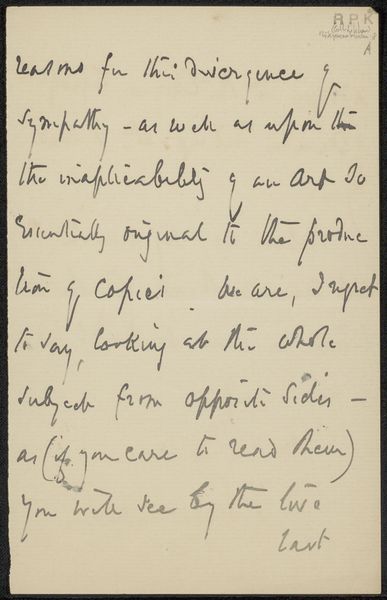 R P K
A
reasons for this divergence of
sympathy - as well as upon the
the inaplicability of an Art so
Essentially original to the produc
tion of copies. We are, I regret
to say, looking at the whole
subject from opposite sides -
as (if you care to read them)
you will see by the two
last